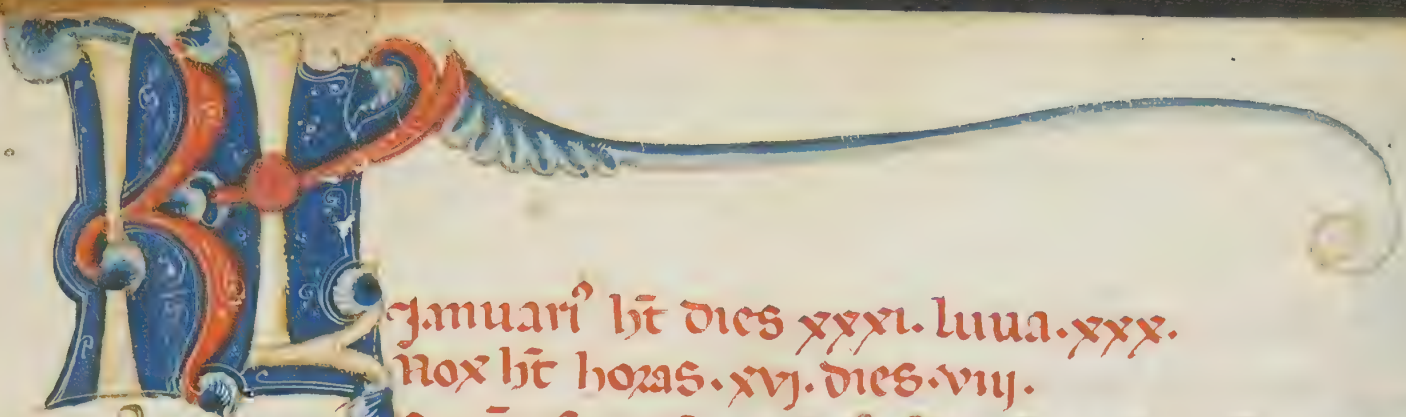 KL
Januariꝰ ht̄ dies xxxi. luna. xxx.
Nox ht̄ horas. xvj. dies. viij.